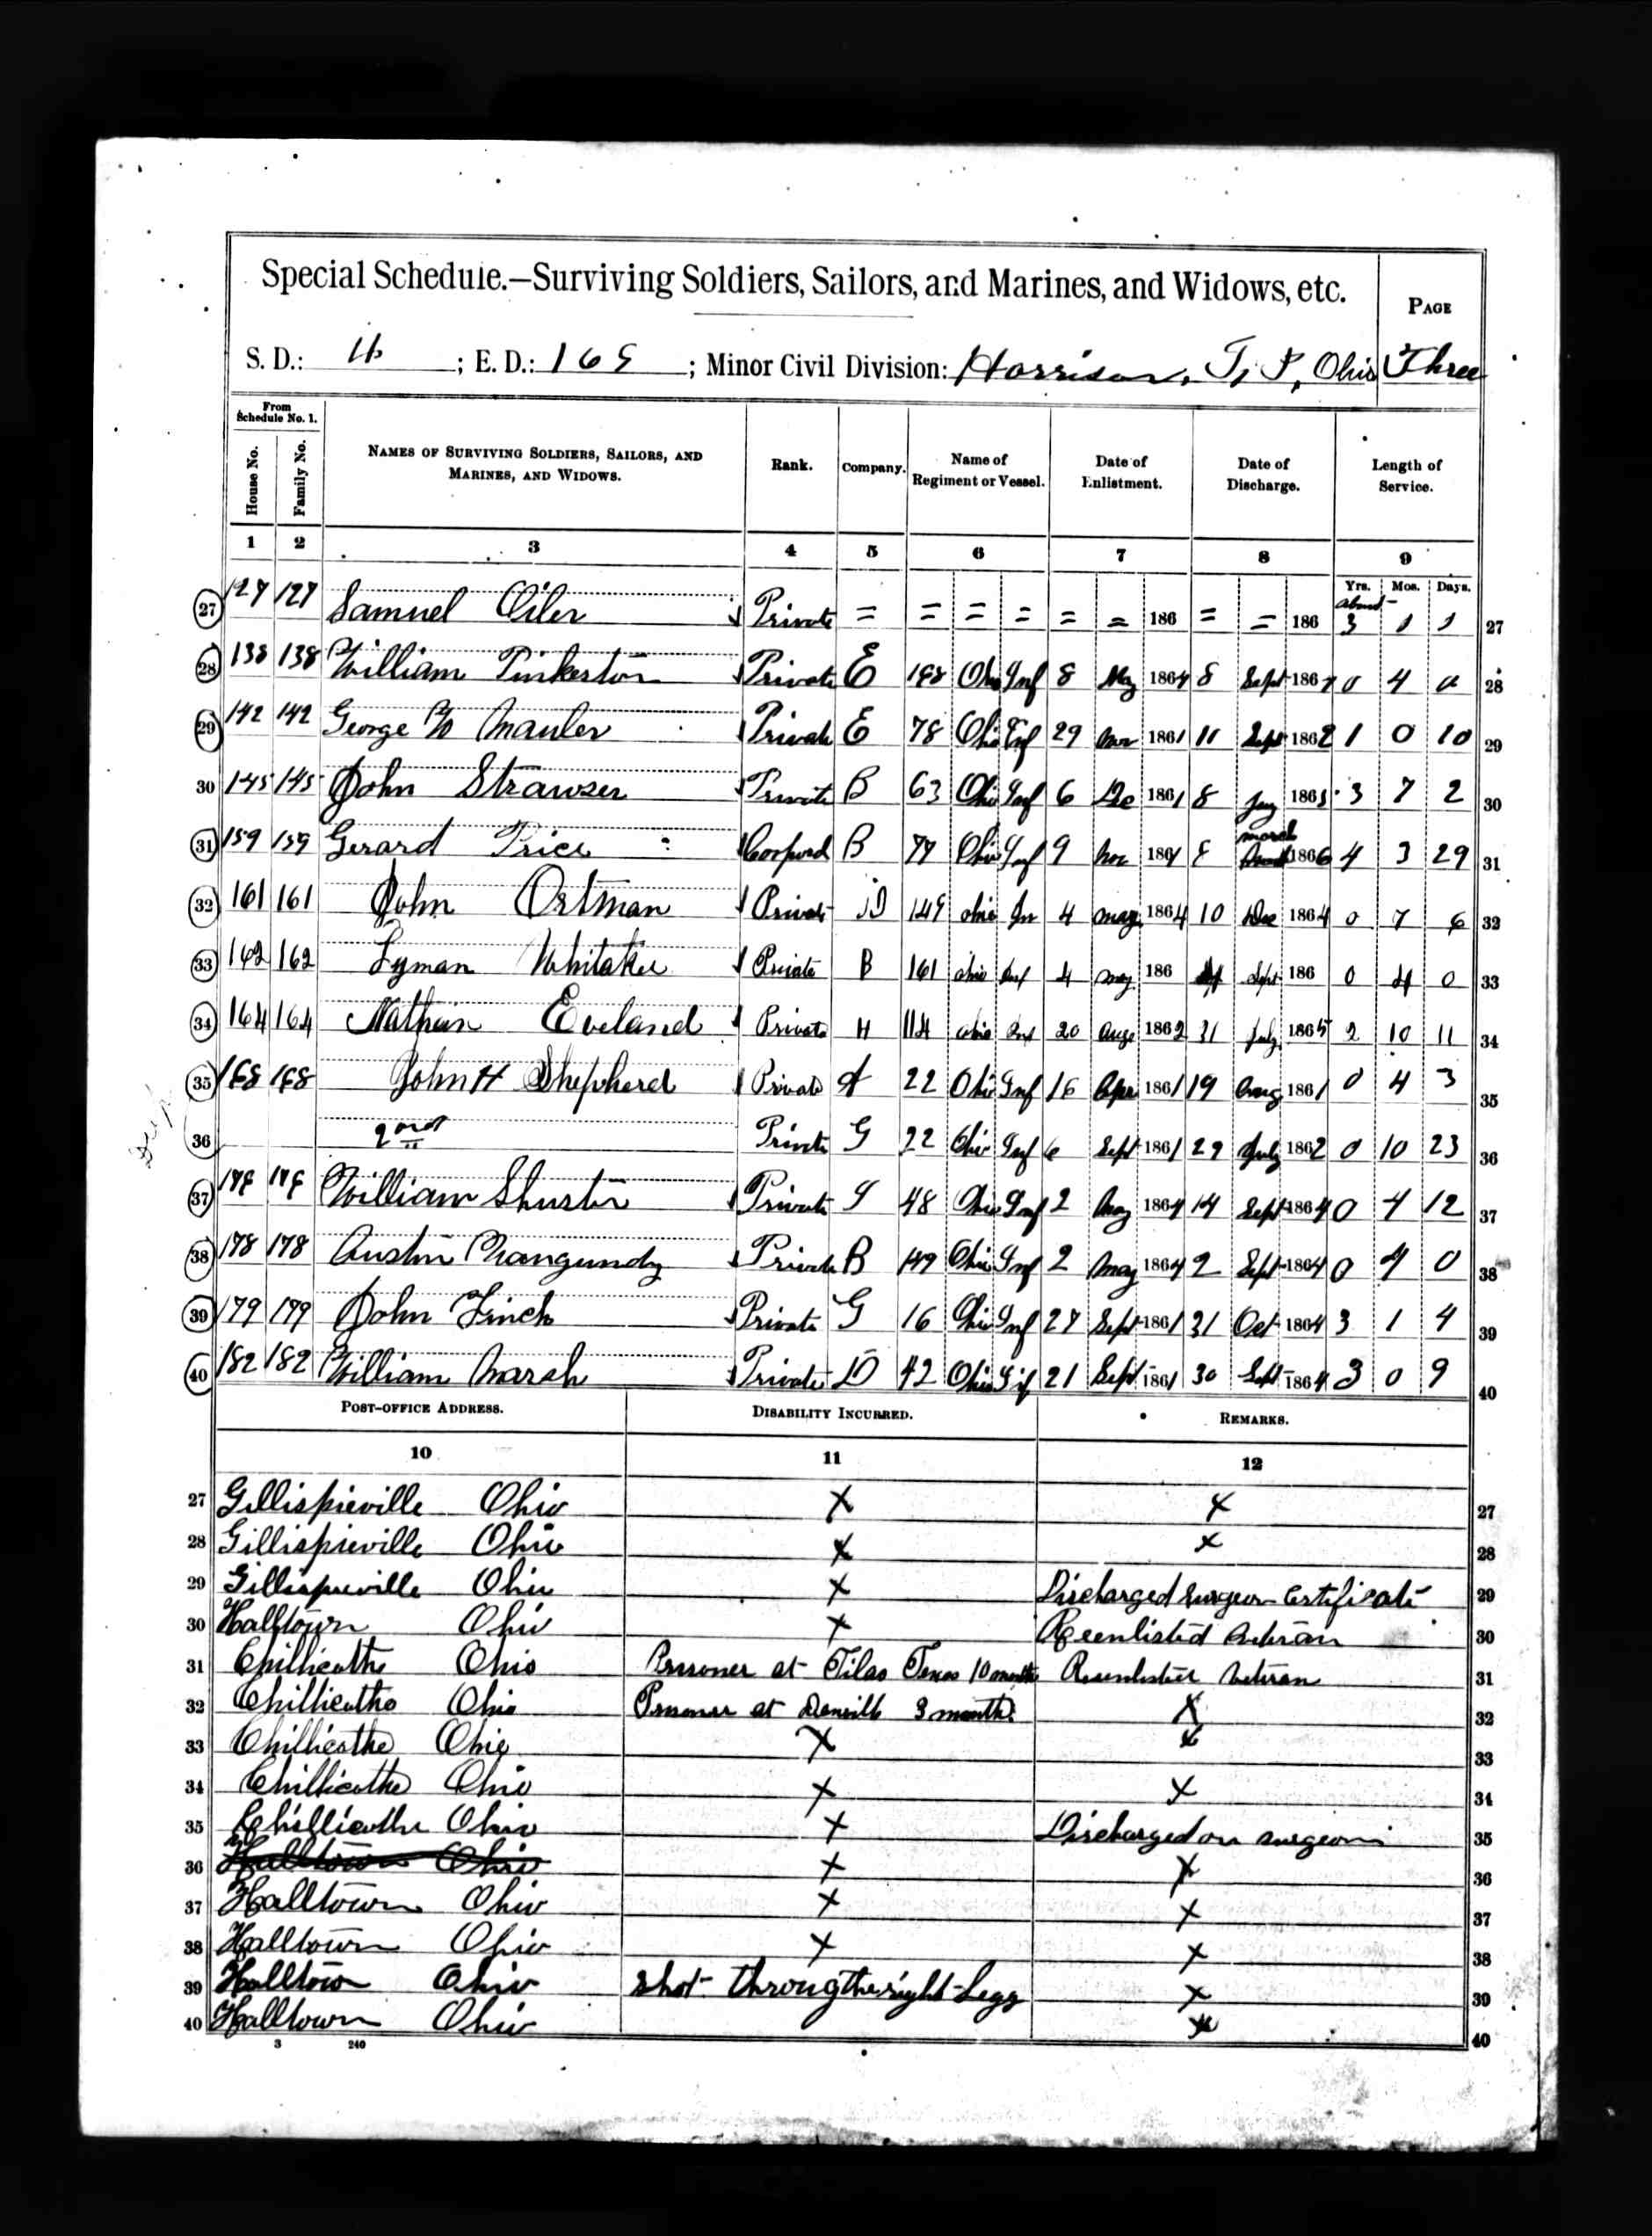 Special Schedule.—Surviving Soldiers, Sailors, and Marines, and Widows, etc.
PAGE
S. D.: ; E. D.: ; Minor Civil Division: Harrison, T, P, Ohio Three
From Schedule No. 1.
House No. Family No. NAMES OF SURVIVING SOLDIERS, SAILORS, AND MARINES, AND WIDOWS. Rank. Company. Name of Regiment or Vessel. Date of Enlistment. Date of Discharge. Length of Service.
1 2 3 4 5 6 7 8 9
Yrs. Mos. Days.
27 127 127 Samuel Oiler Private = = = = = = 186 = = 186 about 3 1 1 27
28 138 138 William Pinkerton Private E Ohio Inf 8 May 1864 8 Sept 186 0 4 0 28
29 142 142 George Mauler Private E 78 Ohio Inf 29 Nov 1861 11 Sept 1862 1 0 10 29
30 145 145 John Strawser Private B 63 Ohio Inf 6 De 1861 8 186 3 7 2 30
31 159 159 Gerard Price B 77 Ohio Inf 9 Nov 1861 8 March 1866 4 3 29 31
32 161 161 John Ortman Private D 149 ohio In 4 may 1864 10 Dec 1864 0 7 6 32
33 162 162 Lyman Whitaker Private B 161 ohio Inf 4 may 186 Sept 186 0 4 0 33
34 164 164 Nathan Eveland Private H 114 ohio Inf 20 Augs 1862 31 July 1865 2 10 11 34
35 168 168 John H Shepherd Private A 22 Ohio Inf 16 Apr 1861 19 Aug 1861 0 4 3 35
36 2nd Private G 22 Ohio Inf 6 Sept 1861 29 July 1862 0 10 23 36
37 William Shuster Private 48 Ohio Inf 2 May 1864 14 Sept 1864 0 4 12 37
38 178 178 Austin Private B 149 Ohio Inf 2 May 1864 2 Sept 1864 0 4 0 38
39 179 179 John Finch Private G 16 Ohio Inf 27 Sept 1861 31 Oct 1864 3 1 4 39
40 182 182 William Marsh Private D 42 Ohio Inf 21 Sept 1861 30 Sept 1864 3 0 9 40
POST-OFFICE ADDRESS. DISABILITY INCURRED. REMARKS.
10 11 12
27 Gillispieville Ohio X X 27
28 Gillispieville Ohio X X 28
29 Gillispieville Ohio X Discharged Surgeon Certificate 29
30 Halltown Ohio X Reenlisted Veteran 30
31 Chillicothe Ohio Prisoner at Texas 10 months Reenlisted Veteran 31
32 Chillicothe Ohio Prisoner at 3 months X 32
33 Chillicothe Ohio X X 33
34 Chillicothe Ohio X X 34
35 Chillicothe Ohio X Discharged on surgeon 35
36 Halltown Ohio X X 36
37 Halltown Ohio X X 37
38 Halltown Ohio X X 38
39 Halltown Ohio Shot through the right Legg X 39
40 Halltown Ohio X 40
3 240